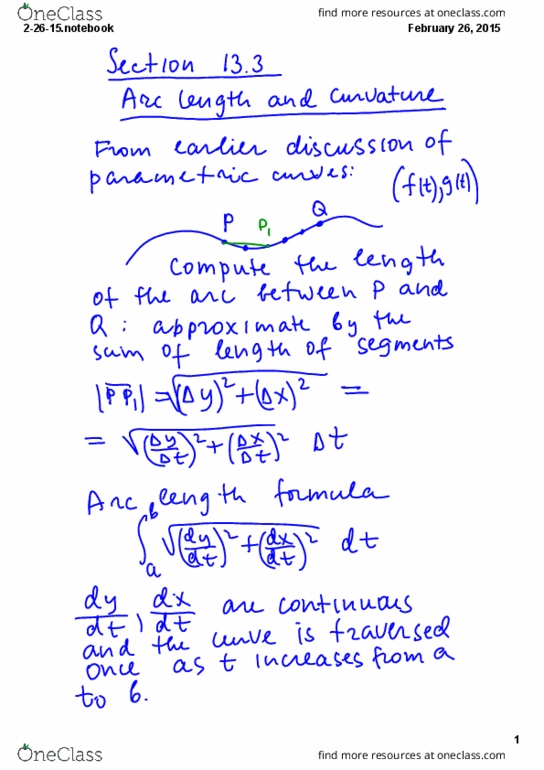 OneClass find more resources at oneclass.com
2-26-15.notebook February 26, 2015
Section 13.3
Arc length and curvature
From earlier discussion of
parametric curves: (f(t), g(t))
P P₁ Q
Compute the length
of the arc between P and
Q: approximate by the
sum of length of segments
|P̅P̅₁| = √((Δy)² + (Δx)²) =
= √((Δy/Δt)² + (Δx/Δt)²) Δt
Arc length formula
∫ₐᵇ √((dy/dt)² + (dx/dt)²) dt
dy/dt, dx/dt are continuous
and the curve is traversed
once as t increases from a
to b.
1
OneClass find more resources at oneclass.com